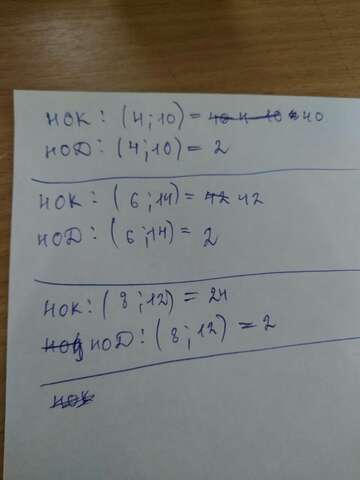 НОК: (4;10) = 40
НОD: (4;10) = 2
НОК: (6;14) = 42 42
НОD: (6;14) = 2
НОК: (8;12) = 24
НОD: (8;12) = 2
нок